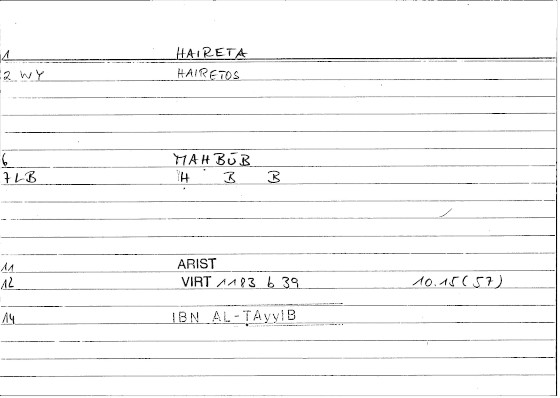 1 HAIRETA
2 WY HAIRETOS
6 MAḤBŪB
7 LB Ḥ B B
11 ARIST
12 VIRT 1183 b 39 10.15(57)
14 IBN AL-ṬAyyIB